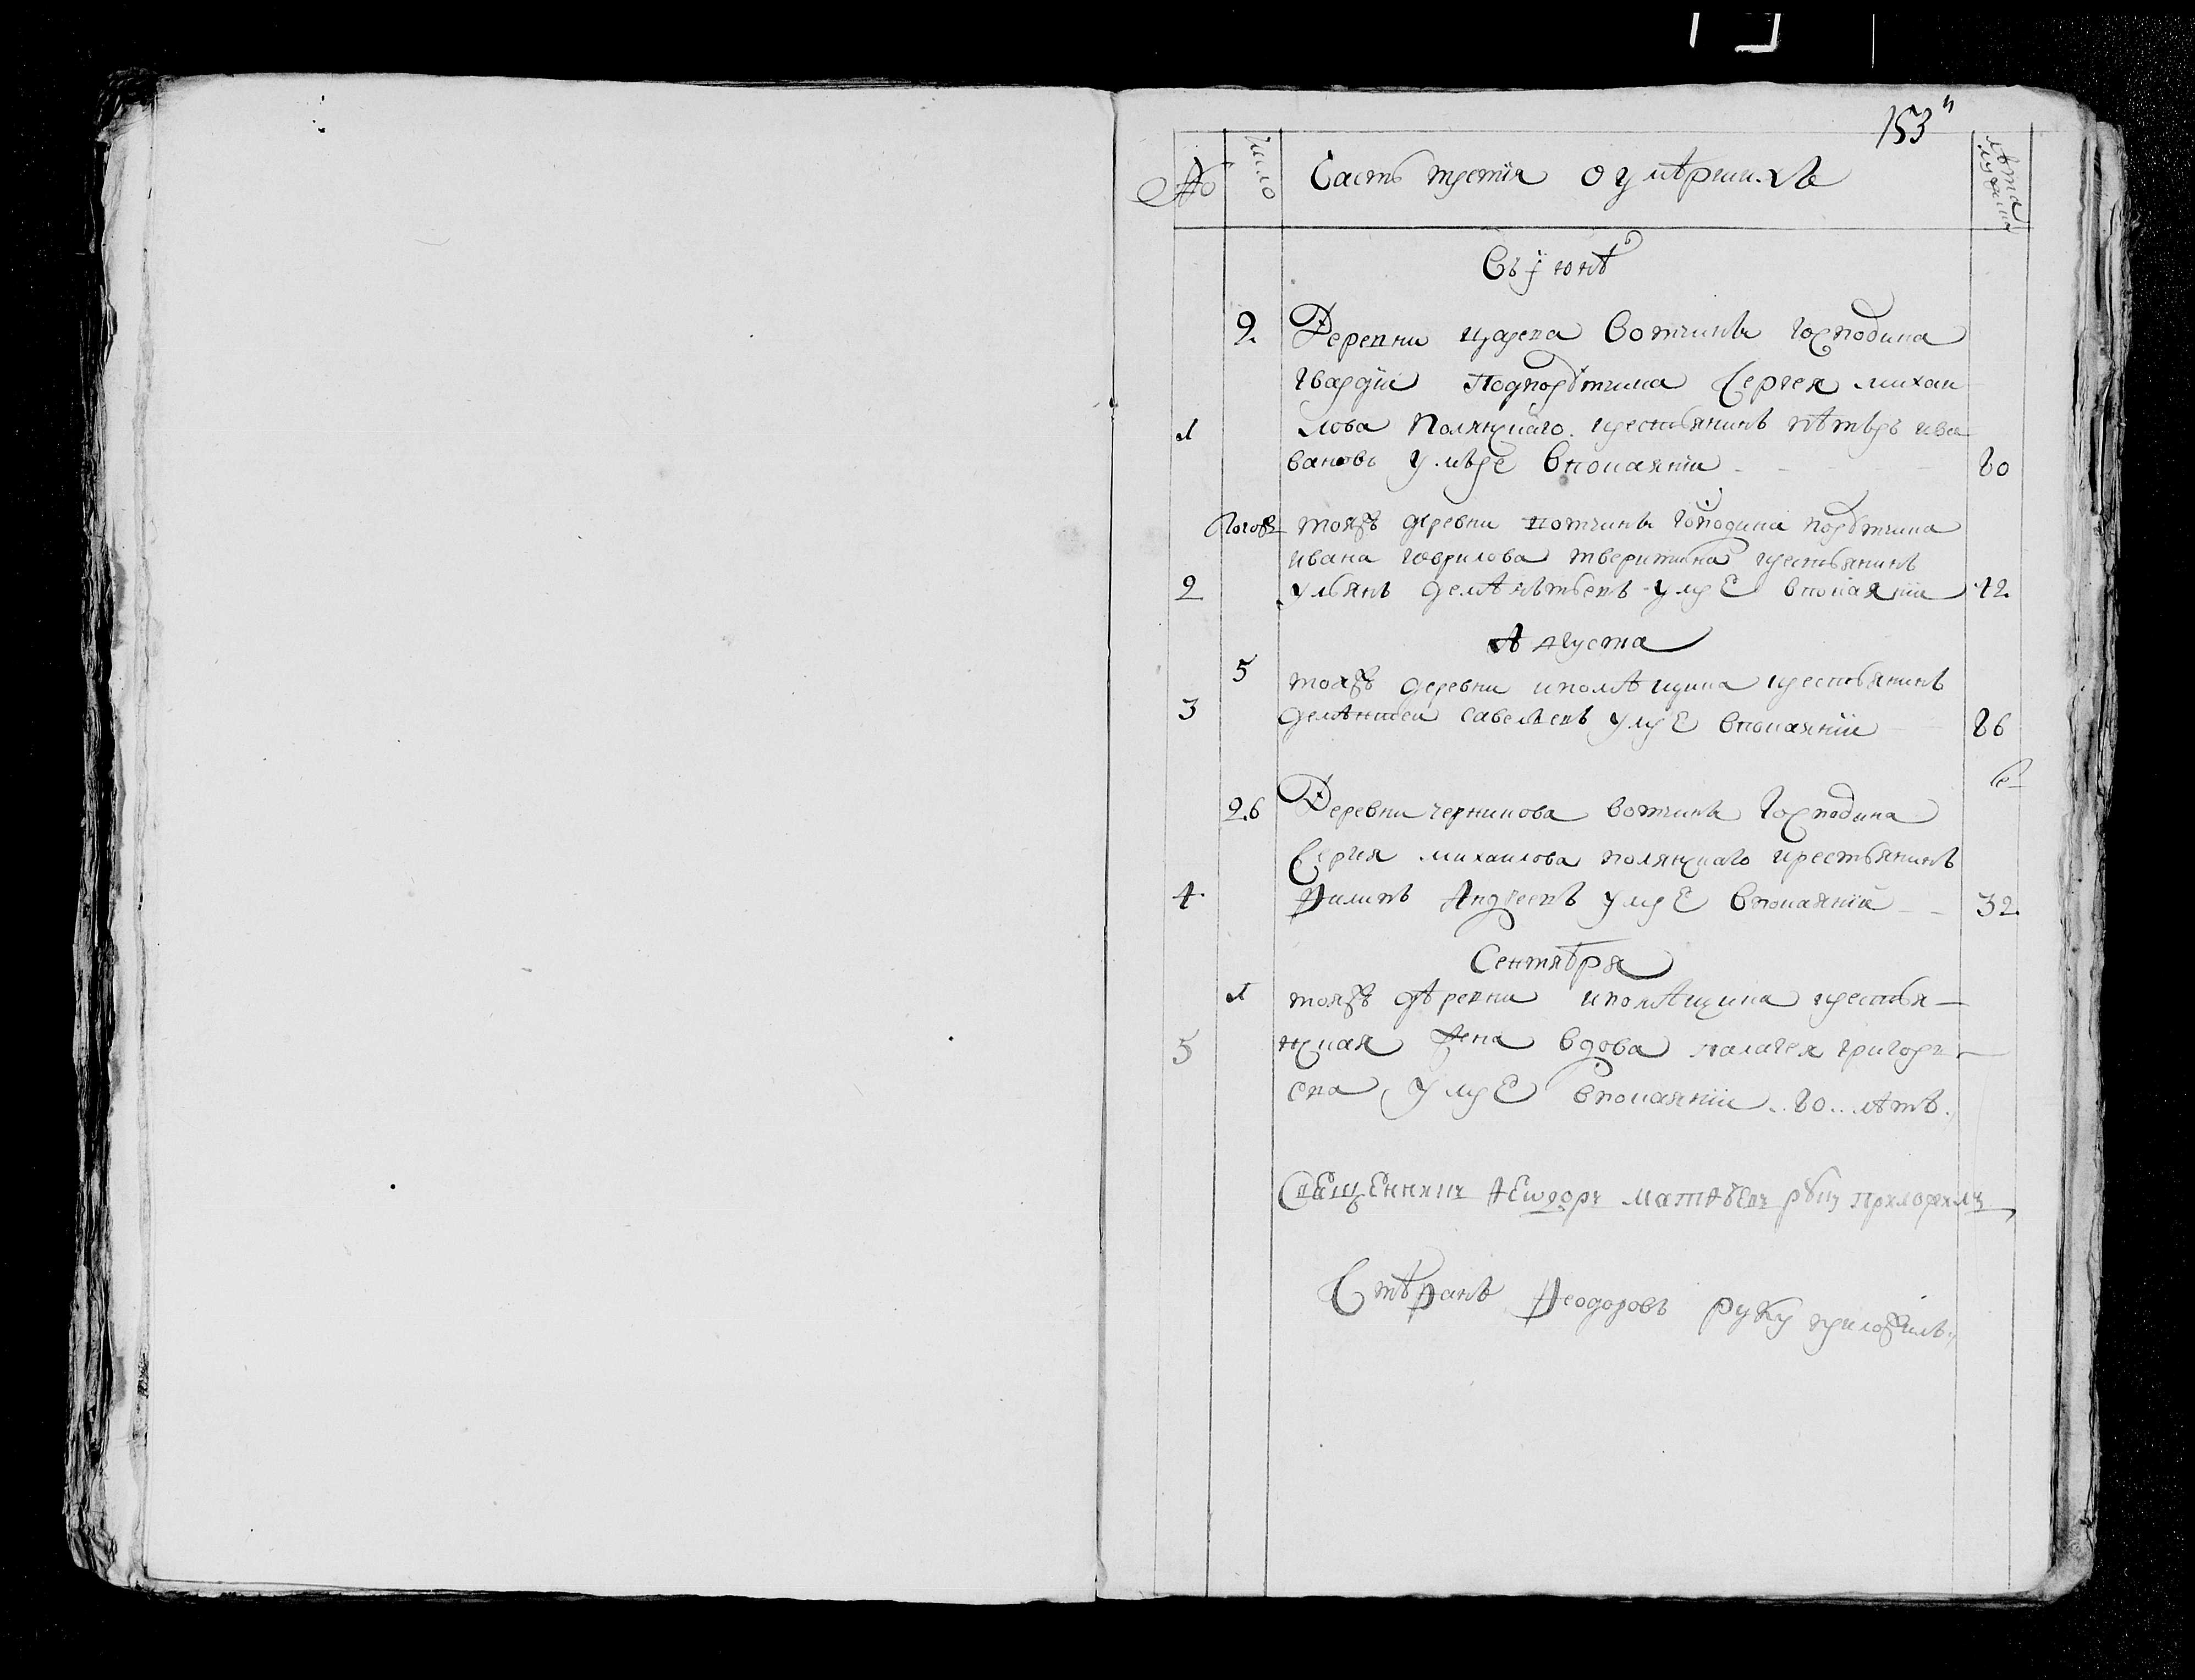 153
№ число Часть третїя о умѣршихъ лѣта мужеска
Въ їюнѣ
2. Деревни царева вотчины господина
гвардїи Подпорутчика Сергея михаи
1 лова Полянскаго крестьянинъ пѣтръ ива
вановъ умьре впокаянїи 80
тояжъ деревни вотчины господина порутчика
ивана гаврилова тверитина крестьянинъ
2 ульянъ умре впокаянїи 42
Августа
5 тояжъ деревни ипомѣщика крестьянинъ
3 савельевъ умре впокаянїи 86
26 Деревни черникова вотчины господина
Сергея михаилова полянскаго крестьянинъ
4 Филипъ Андреевъ умре впокаянїи 32
Сентября
1 тояжъ дѣревни ипомѣщика крестья
5 нская жена вдова палагея григорь
ева умре впокаянїи 80 лѣтъ
Священникъ Ѳеѡдоръ матѳѣевъ руку приложилъ
Стѣфанъ Феодоровъ руку приложилъ